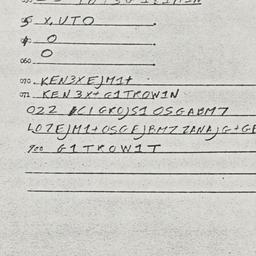 X,UTO
O
060 O
070 KEN3XEJM1+
071 KEN3X+G1TROW1N
022 C1GROJS1 OSGABM7
LO7EJM1+OSGEJBM7ZANAJG+GE
700 G1TROW1T